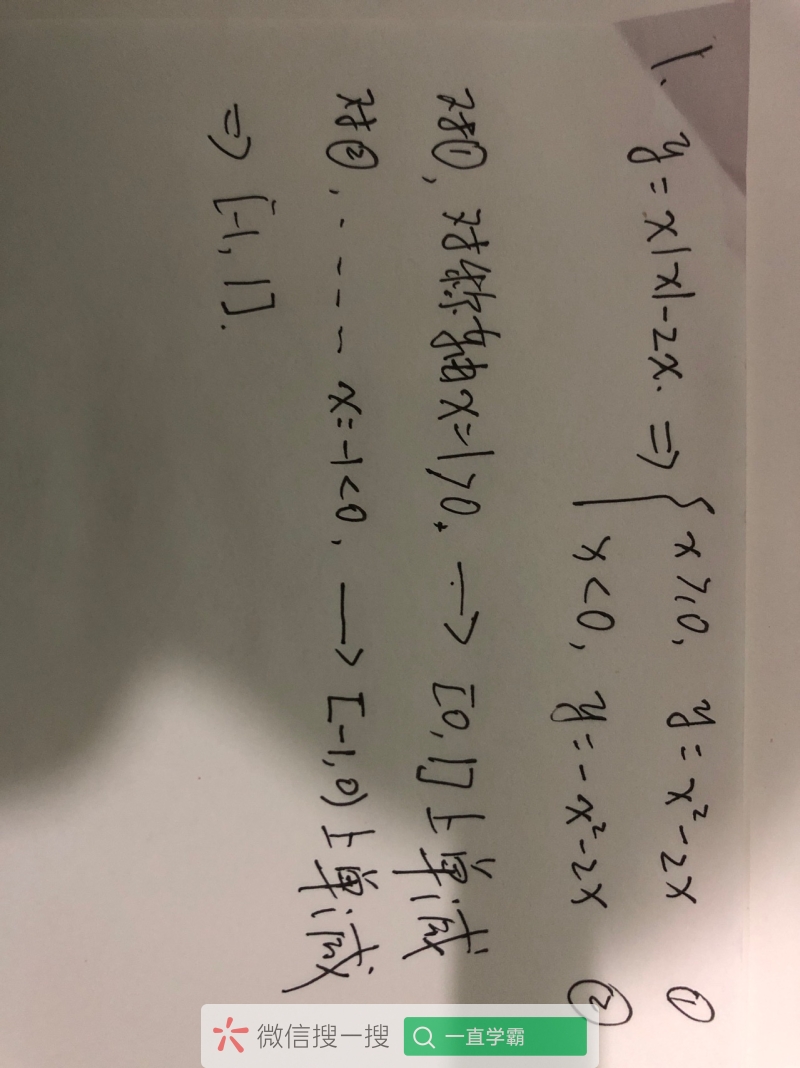 1. y=x|x|-2x. ⇒ { x≥0, y=x²-2x ①
x<0, y=-x²-2x ②
对①, 对称轴x=1>0. → [0,1]上单减
对②, - - - - x=-1<0, → [-1,0)上单减
⇒ [-1,1].
微信搜一搜 一直学霸